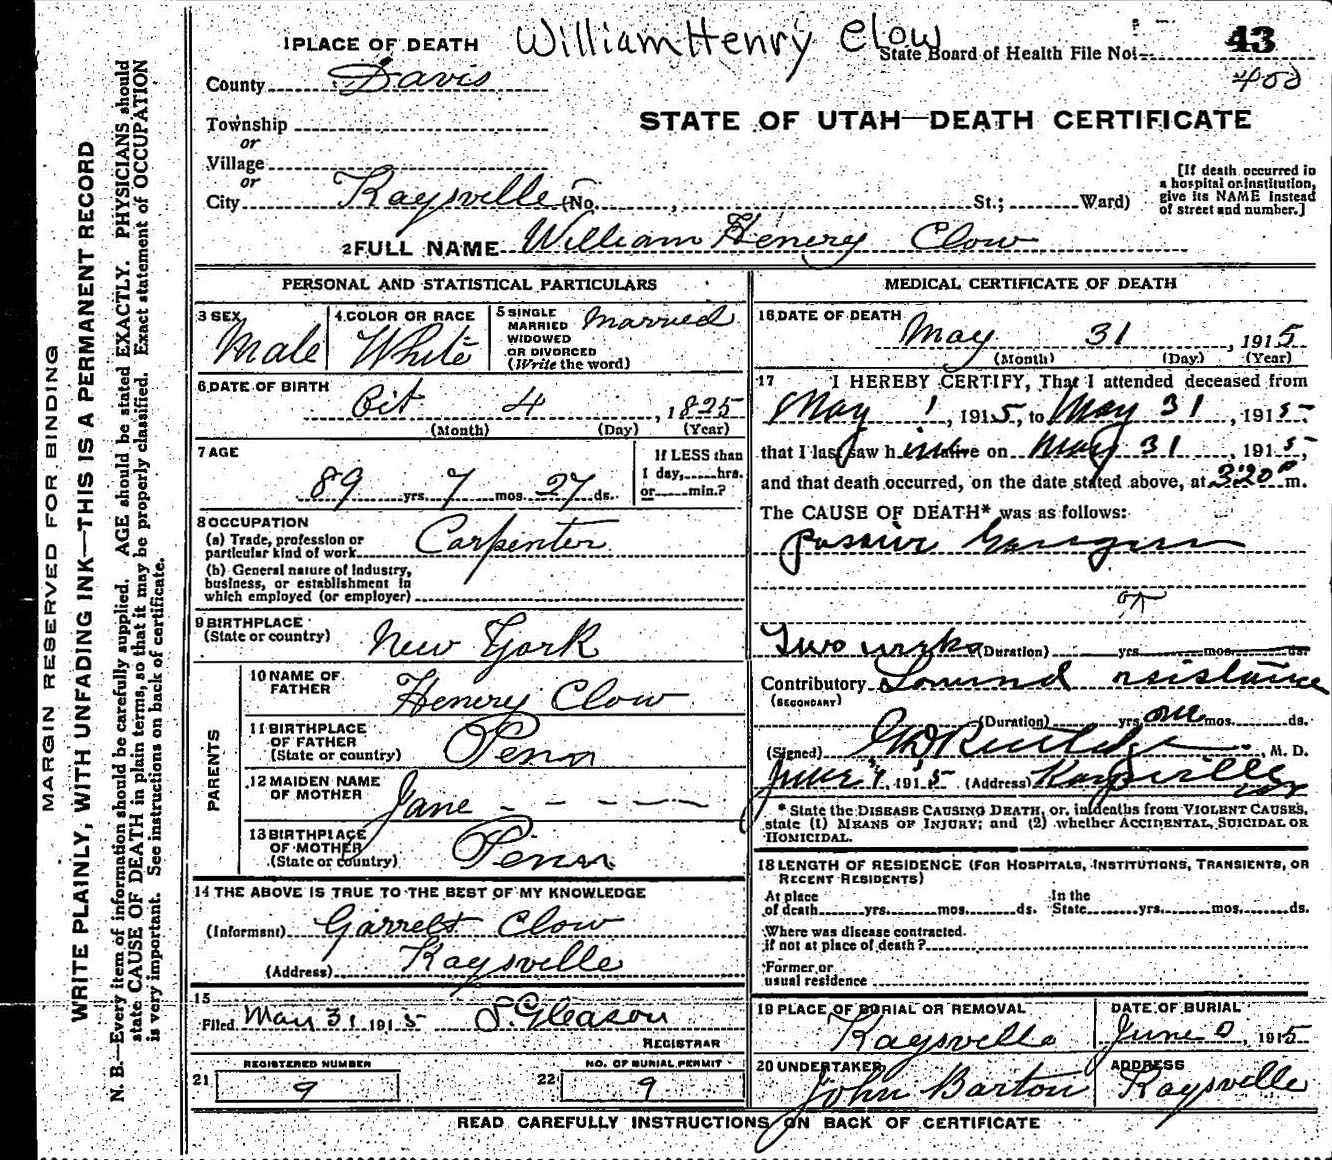 William Henry Clow
1 PLACE OF DEATH
State Board of Health File No. 43
400
County Davis
Township
or
Village
or
City Kaysville (No. , St.; Ward)
STATE OF UTAH—DEATH CERTIFICATE
[If death occurred in a hospital or institution, give its NAME instead of street and number.]
2 FULL NAME William Henery Clow
PERSONAL AND STATISTICAL PARTICULARS
3 SEX Male
4 COLOR OR RACE White
5 SINGLE MARRIED WIDOWED OR DIVORCED (Write the word) Married
6 DATE OF BIRTH
Oct 4, 1825
(Month) (Day) (Year)
7 AGE
89 yrs. 7 mos. 27 ds.
If LESS than 1 day, hrs. or min.?
8 OCCUPATION
(a) Trade, profession or particular kind of work Carpenter
(b) General nature of Industry, business, or establishment in which employed (or employer)
9 BIRTHPLACE (State or country) New York
PARENTS
10 NAME OF FATHER Henery Clow
11 BIRTHPLACE OF FATHER (State or country)
12 MAIDEN NAME OF MOTHER Jane - - - - -
13 BIRTHPLACE OF MOTHER (State or country)
14 THE ABOVE IS TRUE TO THE BEST OF MY KNOWLEDGE
(Informant) Garrett Clow
(Address) Kaysville
15
Filed May 31 1915 S. Gleason
REGISTRAR
REGISTERED NUMBER
21 9
NO. OF BURIAL PERMIT
22 9
MEDICAL CERTIFICATE OF DEATH
16 DATE OF DEATH
May 31, 1915
(Month) (Day) (Year)
17 I HEREBY CERTIFY, That I attended deceased from
May 1, 1915, to May 31, 1915
that I last saw him alive on May 31, 1915,
and that death occurred, on the date stated above, at 3:20 P m.
The CAUSE OF DEATH* was as follows:
Two weeks (Duration) yrs. mos. ds.
Contributory (SECONDARY) resistance
(Duration) yrs. one mos. ds.
(Signed) Rutledge, M. D.
June 1, 1915 (Address) Kaysville
* State the DISEASE CAUSING DEATH, or, in deaths from VIOLENT CAUSES,
state (1) MEANS OF INJURY; and (2) whether ACCIDENTAL, SUICIDAL OR
HOMICIDAL.
18 LENGTH OF RESIDENCE (FOR HOSPITALS, INSTITUTIONS, TRANSIENTS, OR
RECENT RESIDENTS)
At place of death yrs. mos. ds. In the State yrs. mos. ds.
Where was disease contracted.
if not at place of death?
Former or
usual residence
19 PLACE OF BURIAL OR REMOVAL
Kaysville
DATE OF BURIAL
June , 1915
20 UNDERTAKER
John Barton
ADDRESS
Kaysville
READ CAREFULLY INSTRUCTIONS ON BACK OF CERTIFICATE
MARGIN RESERVED FOR BINDING
WRITE PLAINLY, WITH UNFADING INK—THIS IS A PERMANENT RECORD
N. B.—Every item of information should be carefully supplied. AGE should be stated EXACTLY. PHYSICIANS should
state CAUSE OF DEATH in plain terms, so that it may be properly classified. Exact statement of OCCUPATION
is very important. See instructions on back of certificate.